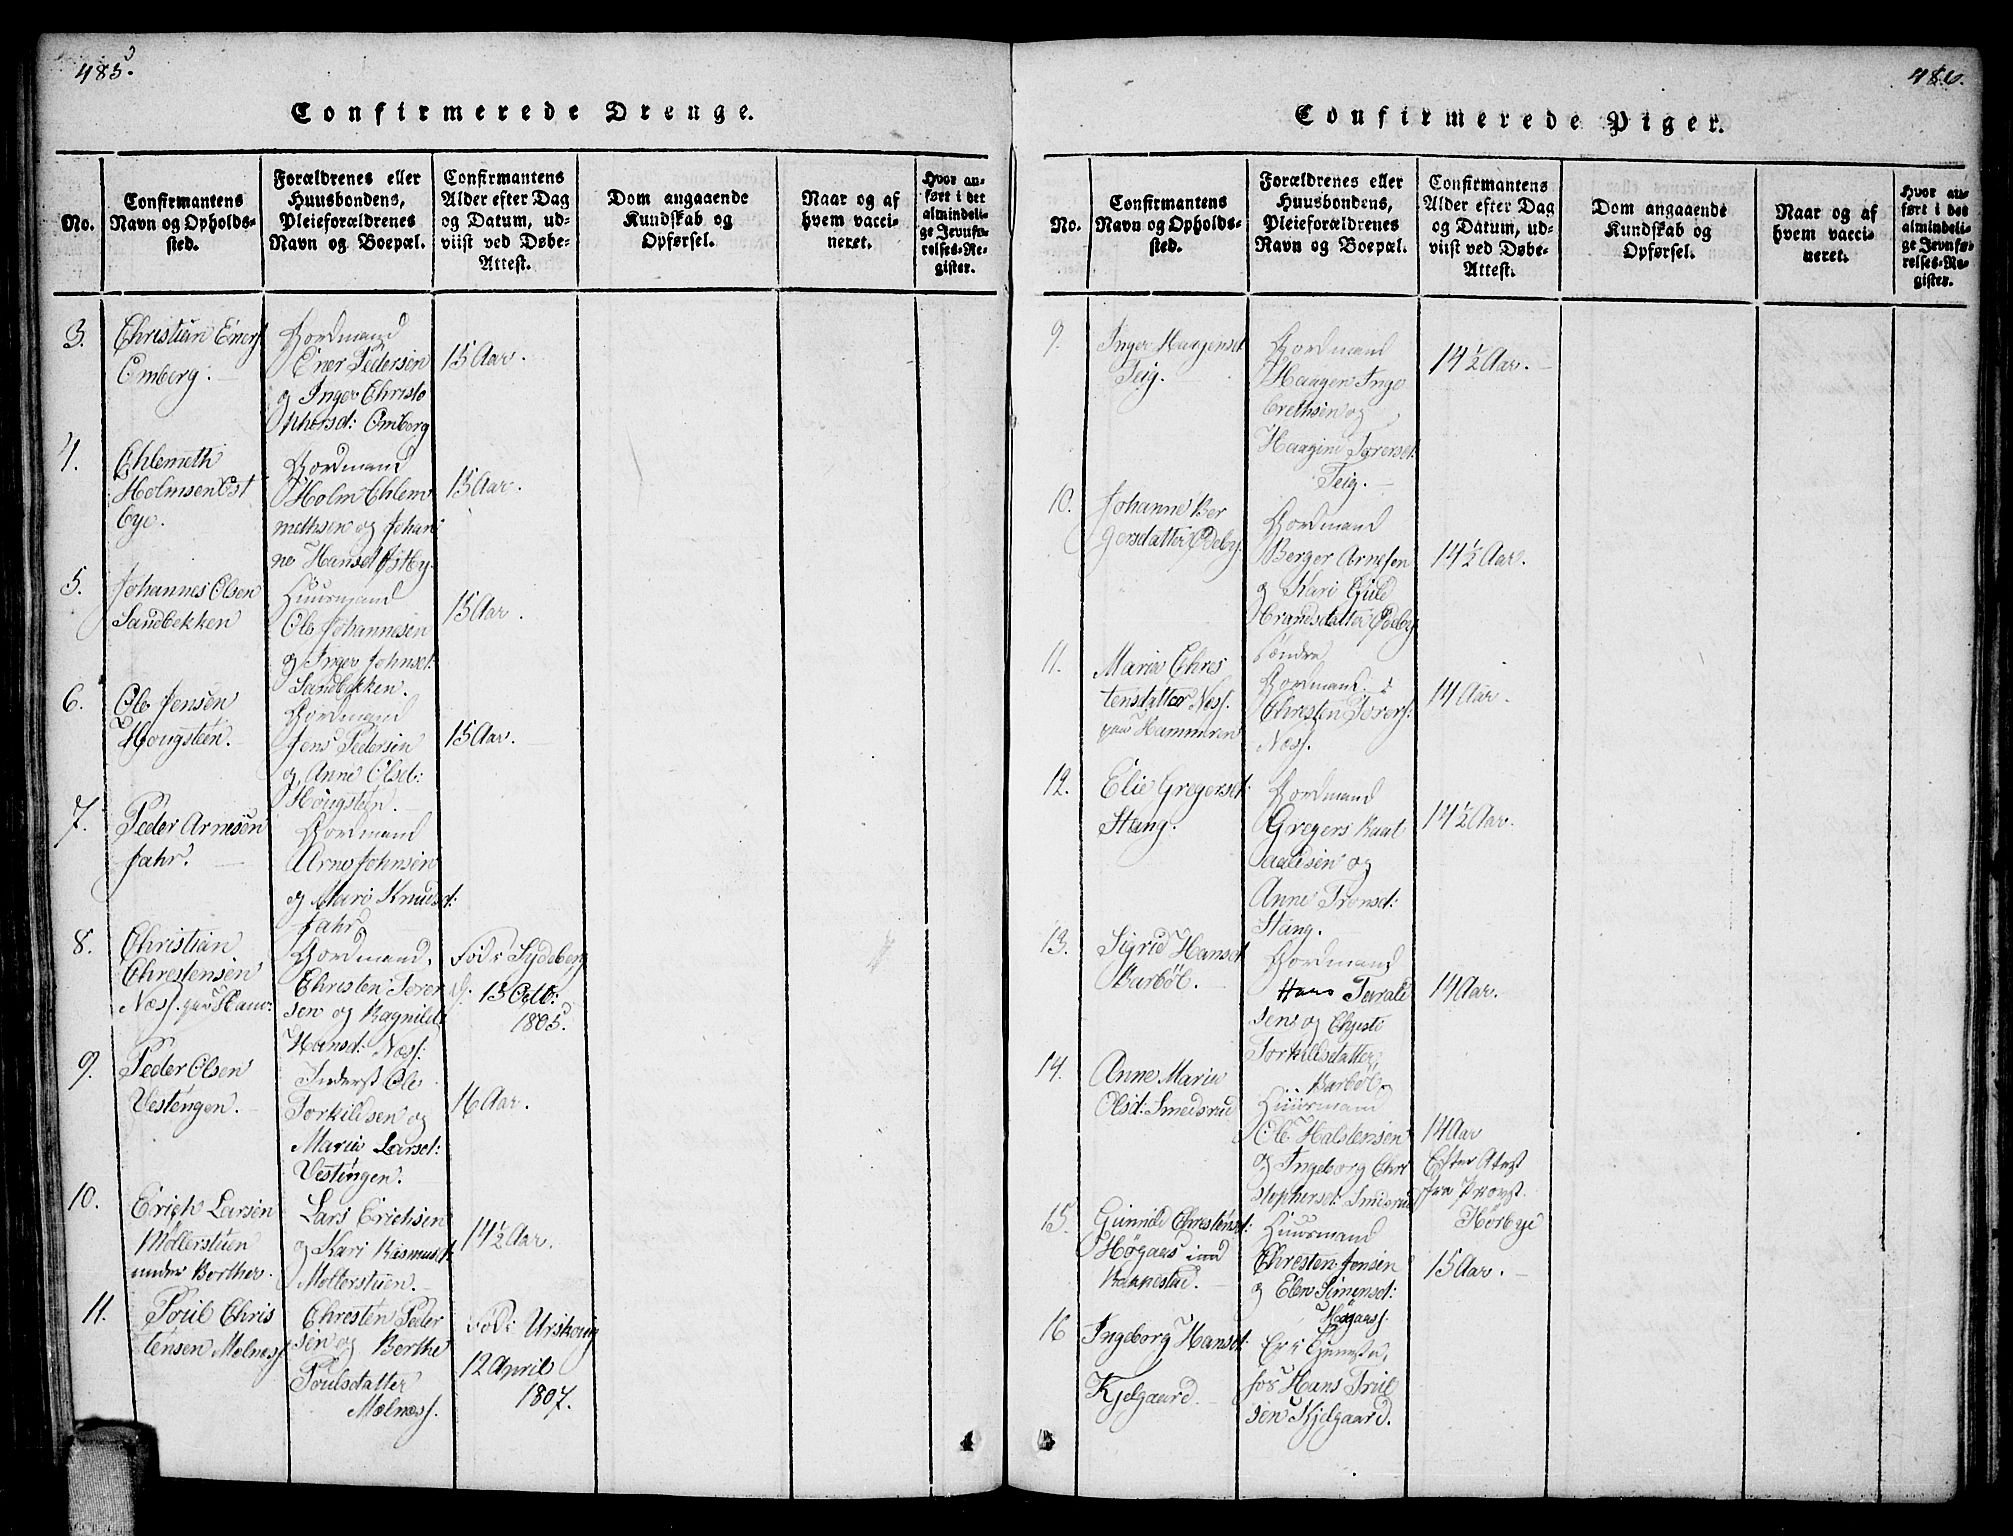 485.
Confirmerede Drenge.
No.
Confirmantens
Navn og Opholds-
sted.
Forældrenes eller
Huusbondens,
Pleieforældrenes
Navn og Boepæl.
Confirmantens
Alder efter Dag
og Datum, ud-
viist ved Døbe-
Attest.
Dom angaaende
Kundskab og
Opførsel.
Naar og af
hvem vacci-
neret.
Hvor an-
ført i det
almindeli-
ge Jevnfø-
relses-Re-
gister.
3.
Christian Eners
Omberg.
Gordmand
Ener Pedersen
og Inger Christo
phersd: Omberg
15 Aar.
4.
Ehlemeth
Holmsen Øst
bye.
Gordmand
Holm Ehlem
methsen og Johan
ne Hansd Østby.
15 Aar.
5.
Johannes Olsen
Sandbekken
Huusmand
Ole Johannesen
og Inger Johnsd:
Sandbekken.
15 Aar.
6.
Ole Jensen
Hougsteen.
Gordmand
Jens Pedersen
og Anne Olsd:
Hougsteen.
15 Aar.
7.
Peder Arnesen
Jahr.
Gordmand
Arne Johnsen
og Mari Knudsd:
Jahr
8.
Christian
Chrestensen
Næss. paa Ham:
Gordmand,
Christen Torer
sen og Ragnild
Hansd: Næss:
Fød i Rydeberg
d: 13 Octb:
1805.
9.
Peder Olsen
Vestengen.
Inderst Ole
Torkildsen og
Maria Larsd:
Vestengen.
16 Aar.
10.
Erich Larsen
Møllerstuen
under Berther.
Lars Erichsen
og Kari Rasmusd.
Møllerstuen.
14½ Aar.
11.
Poul Chris
tensen Melness
Chresten Peder
sen og Berthe
Poulsdatter
Mælness.
Fød i Urskoug
12 April
1807.
486.
Confirmerede Piger.
No.
Confirmantens
Navn og Opholds-
sted.
Forældrenes eller
Huusbondens,
Pleieforældrenes
Navn og Boepæl.
Confirmantens
Alder efter Dag
og Datum, ud-
viist ved Døbe-
Attest.
Dom angaaende
Kundskab og
Opførsel.
Naar og af
hvem vacci-
neret.
Hvor an-
ført i det
almindeli-
ge Jevnfø-
relses-Re-
gister.
9.
Inger Haagensd
Teig.
Gordmand
Haagen Inge
brethsen og
Haagine Torersd:
Teig.
14½ Aar.
10.
Johanne Ber
gersdatter Ødeby.
Gordmand
Berger Arnesen
og Kari Guld
brandsdatter Ødeby
søndre
14½ Aar.
11.
Maria Chres
tensdatter Ness.
paa Hammeren
Gordmand
Chresten Torers:
Næss.
14 Aar.
12.
Elie Gregersd:
Stang.
Gordmand
Gregers
Paalsen og
Anne Tronsd:
Stang.
14½ Aar.
13.
Sigrid Hansd
Barbøl.
Gordmand
Hans Tarald
sen og Chresti
Torkildsdatter
Barbøl
14 Aar.
14.
Anne Maria
Olsd: Smedsrud
Huusmand
Ole Halstensen
og Ingeborg Chri
stophersd: Smedsrud
14 Aar
Efter Atest
fra Provst
Hørbye
15.
Gunnild Christensd:
Høgaas und
Bannestad.
Huusmand
Chresten Jensen
og Elen Simensd:
Høgaas.
15 Aar.
16
Ingeborg Hansd:
Kjelgaard.
Er i Tjeneste,
hos Hans Trul
sen Kjelgaard.